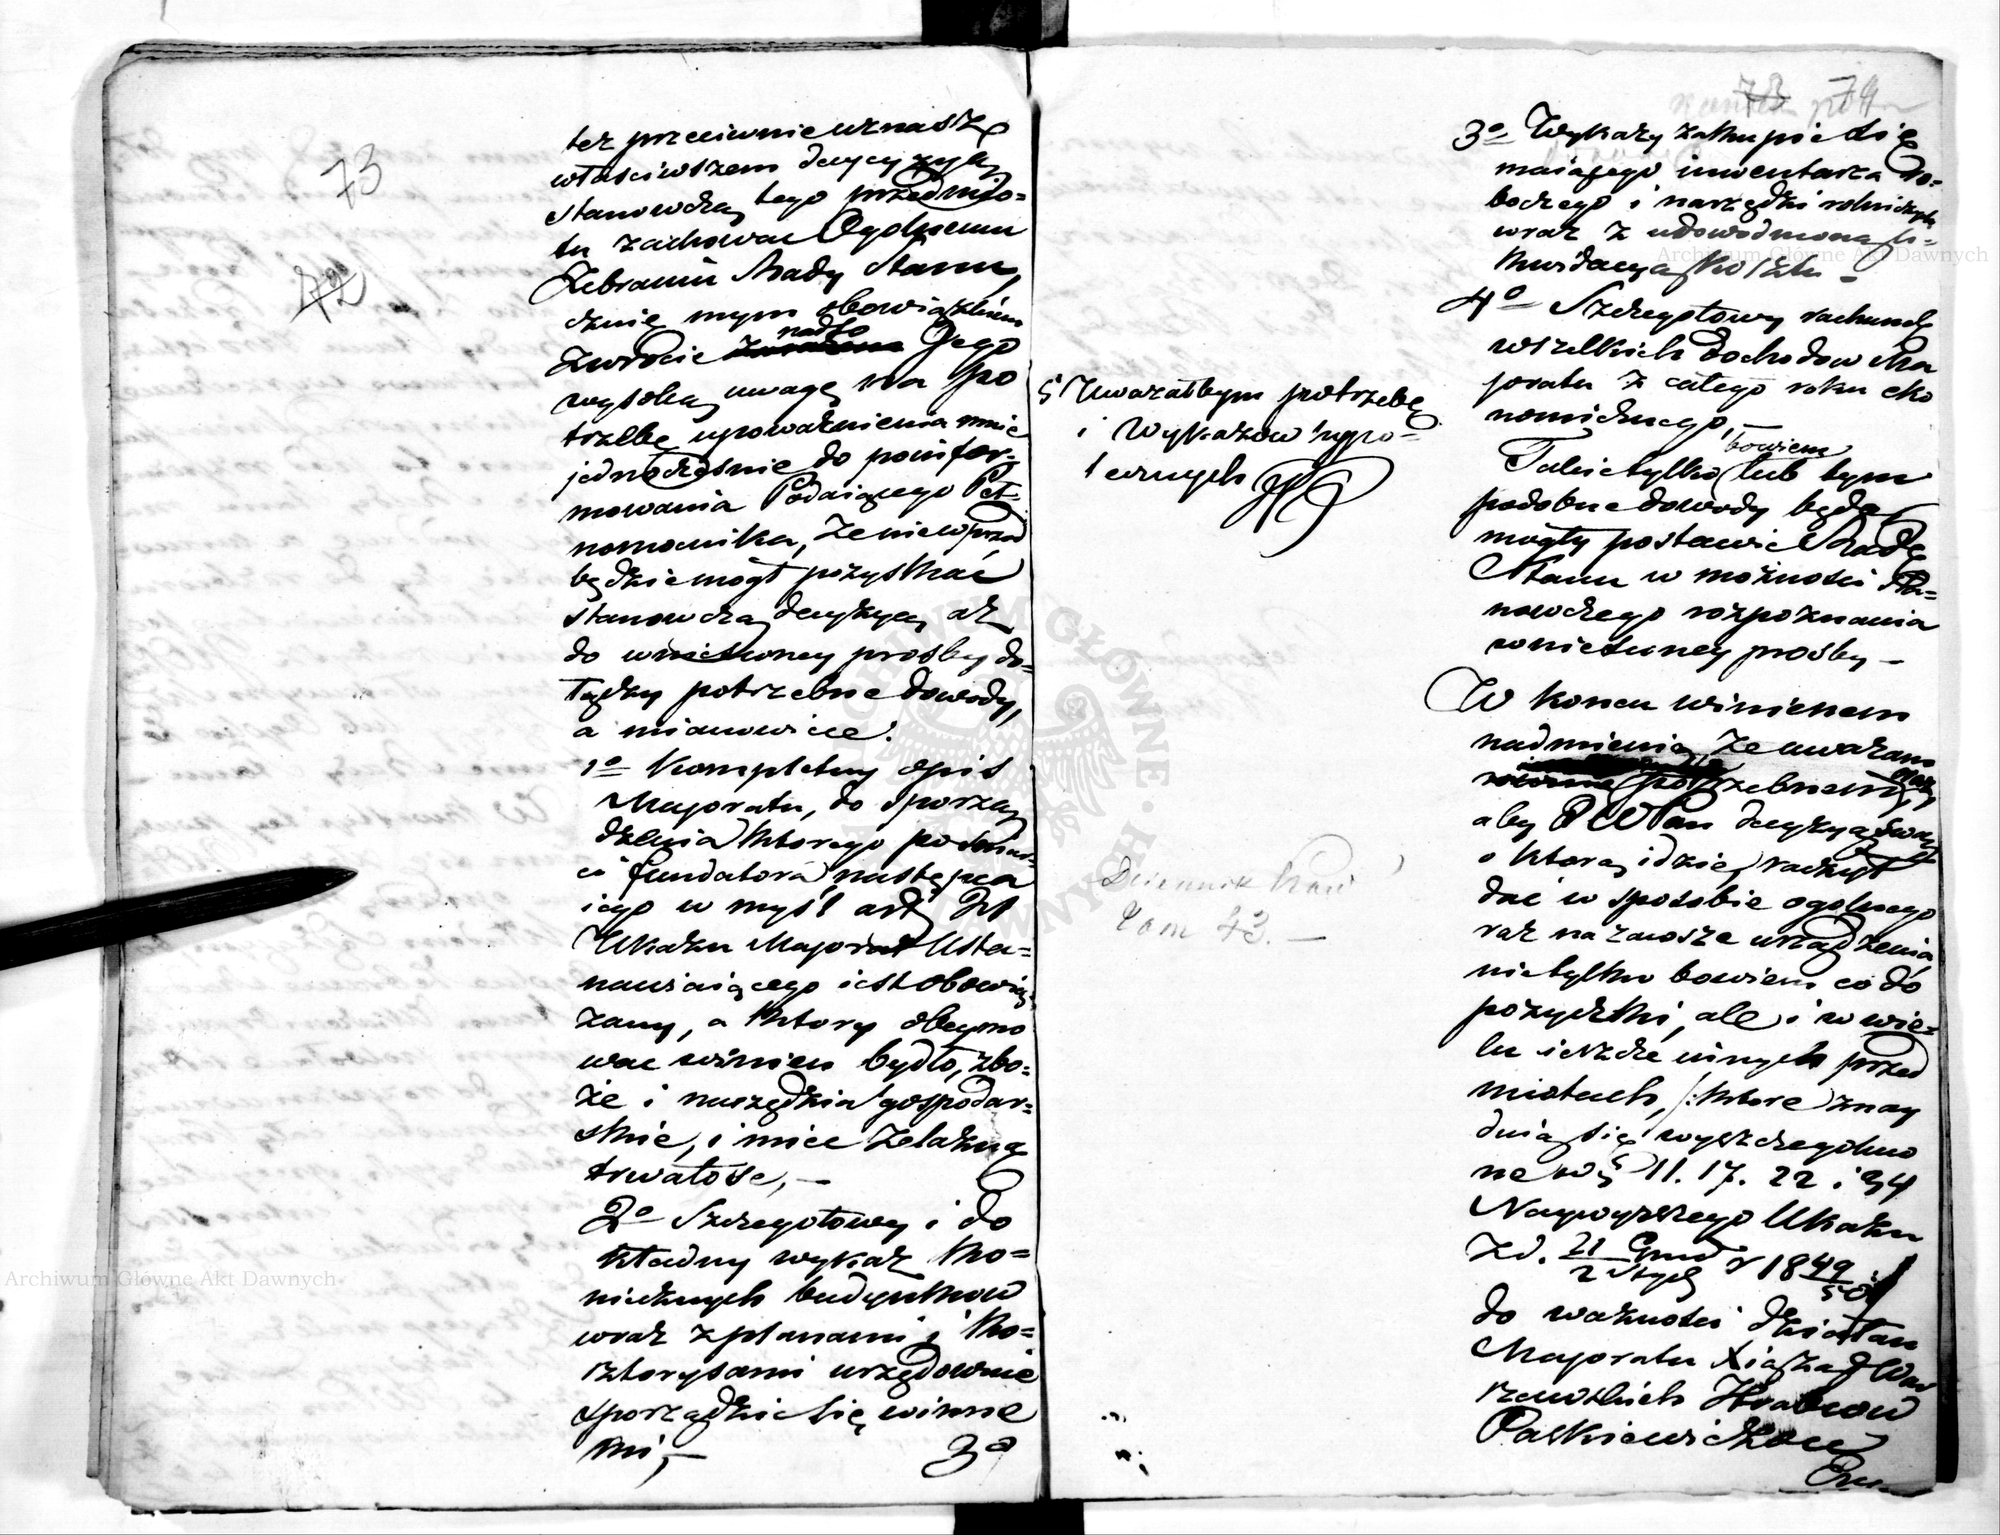 73
72
też przeciwnie uznasz
właściwszem decyzyą
stanowczą tego przedmio=
tu zachować Ogólnemu
Zebraniu Rady Stanu,
obowiązkiem
nadto Jego
wysoką uwagę na po
trzebę upoważnienia mnie
jednocześnie do poinfor=
mowania Podaiącego Peł=
nomocnika, że niewprzód
będzie mógł pozyskać
stanowczą decyzyą, aż
do wniesioney prośby do=
łączy potrzebne dowody,
a mianowicie:
1o Kompletny opis
Majoratu, do sporzą
dzenia którego po śmier=
ci fundatora, następca
iego w myśl art. 21
Ukazu Majorat Usta=
nawiaiącego iest obowią
zany, a który obeymo
wać winien bydło, zbo=
że i narzędzia gospodar=
skie, i mieć żelazną
trwałość, —
2o Szczegółowy i do
kładny wykaz ko=
niecznych budynków
wraz z planami i ko=
sztorysami urzędownie
sporządzić się winne
mi, —
3o
73 74
3o Wykazy zakupić się
maiącego inwentarza ro=
boczego i narzędzi rolniczych
wraz z udowodnioną li=
kwidacyą kosztu —
4o Szczegółowy rachunek
wszelkich dochodów Ma
joratu z całego roku eko
nomicznego, —
5 Uważałbym potrzebę
i Wykazów hypo=
tecznych
bowiem
Takie tylko lub tym
podobne dowody będą
mogły postawić Radę
Stanu w możności sta=
nowczego rozpoznania
wniesioney prośby —
W końcu winienem
nadmienić, że uważam
potrzebnem,
aby JW Pan decyzyą swą
o którą idzie, raczył
dać w sposobie ogólnego
raz na zawsze urządzenia
nietylko bowiem co do
pożyczki, ale i w wie=
lu ieszcze innych przed
miotach, /: które znay
duią się wyszczególnio
ne w § 11. 17. 22 i 34
Naywyższego Ukazu
z d. 21 Grud / 2 Stycz r 1849/50 :/
do ważności działań
Majoratu Xiążąt War
szawskich Hrabiów
Paskiewiczów
Dziennik Praw
Tom 43. —